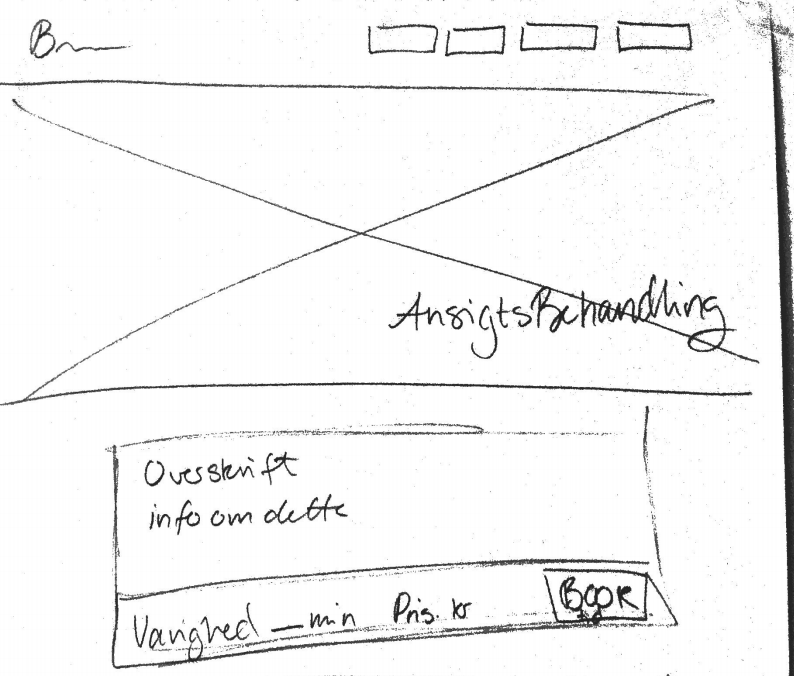 AnsigtsBehandling
Overskrift
info om dette
Varighed — min Pris. kr BOOK